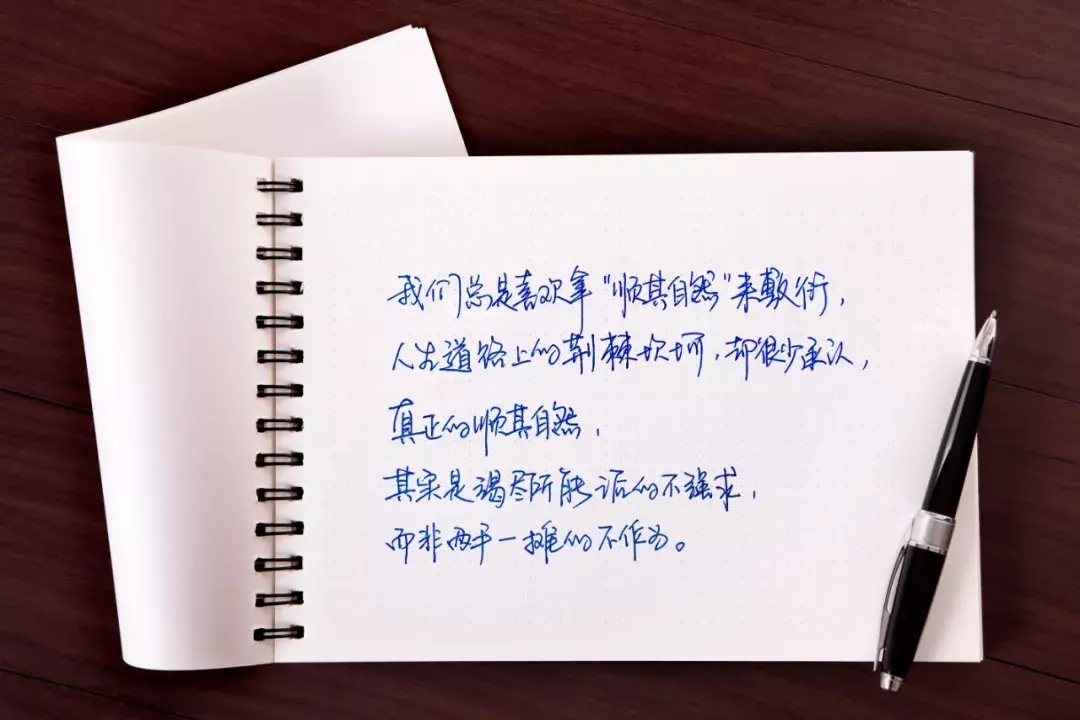 我们总是喜欢拿“顺其自然”来敷衍，
人生道路上的荆棘坎坷，却很少承认，
真正的顺其自然，
其实是竭尽所能后的不强求，
而非两手一摊的不作为。